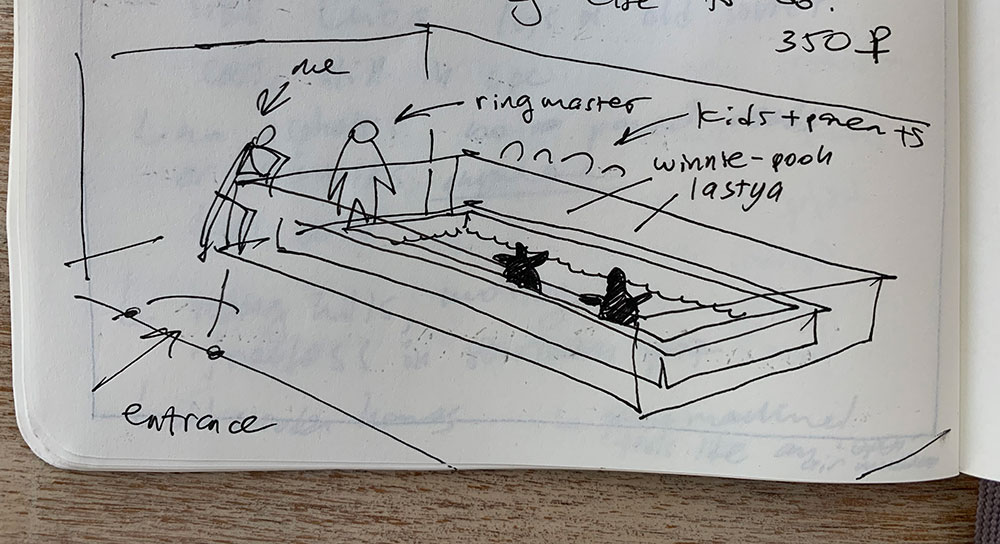 else is
350 ₽
me
ringmaster
kids + parents
winnie-pooh
lastya
entrance